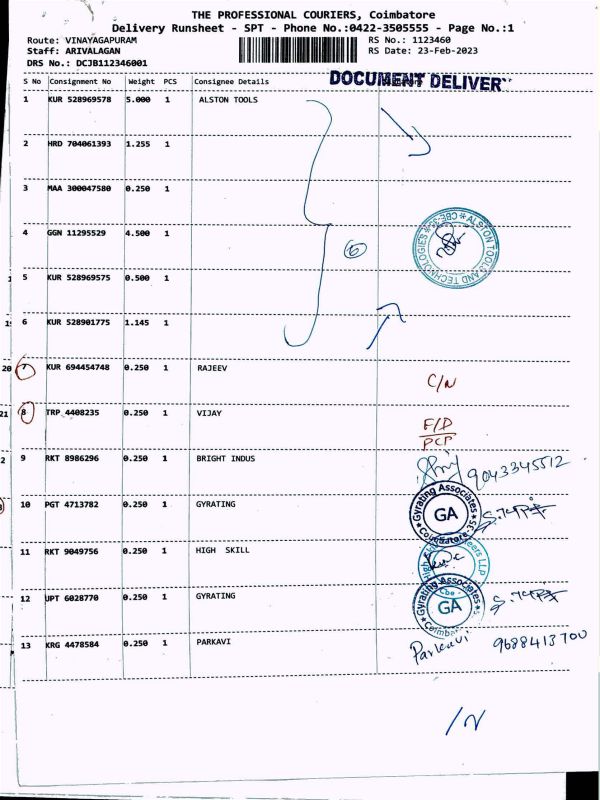 THE PROFESSIONAL COURIERS, Coimbatore
Delivery Runsheet - SPT - Phone No.:0422-3505555 - Page No.:1
Route: VINAYAGAPURAM RS No.: 1123460
Staff: ARIVALAGAN RS Date: 23-Feb-2023
DRS No.: DCJB112346001
DOCUMENT DELIVER
S No Consignment No Weight PCS Consignee Details
1 KUR 528969578 5.000 1 ALSTON TOOLS
2 HRD 704061393 1.255 1
3 MAA 300047580 0.250 1
4 GGN 11295529 4.500 1
ALSTON TOOLS AND TECHNOLOGIES
6
5 KUR 528969575 0.500 1
6 KUR 528901775 1.145 1
20 7 KUR 694454748 0.250 1 RAJEEV C/N
21 8 TRP 4408235 0.250 1 VIJAY F/D
PCP
9 RKT 8986296 0.250 1 BRIGHT INDUS 9043345512
10 PGT 4713782 0.250 1 GYRATING Gyrating Associates GA Coimbatore-35
11 RKT 9049756 0.250 1 HIGH SKILL
12 UPT 6028770 0.250 1 GYRATING Gyrating Associates GA
13 KRG 4478584 0.250 1 PARKAVI Parkavi 9688413700
/N